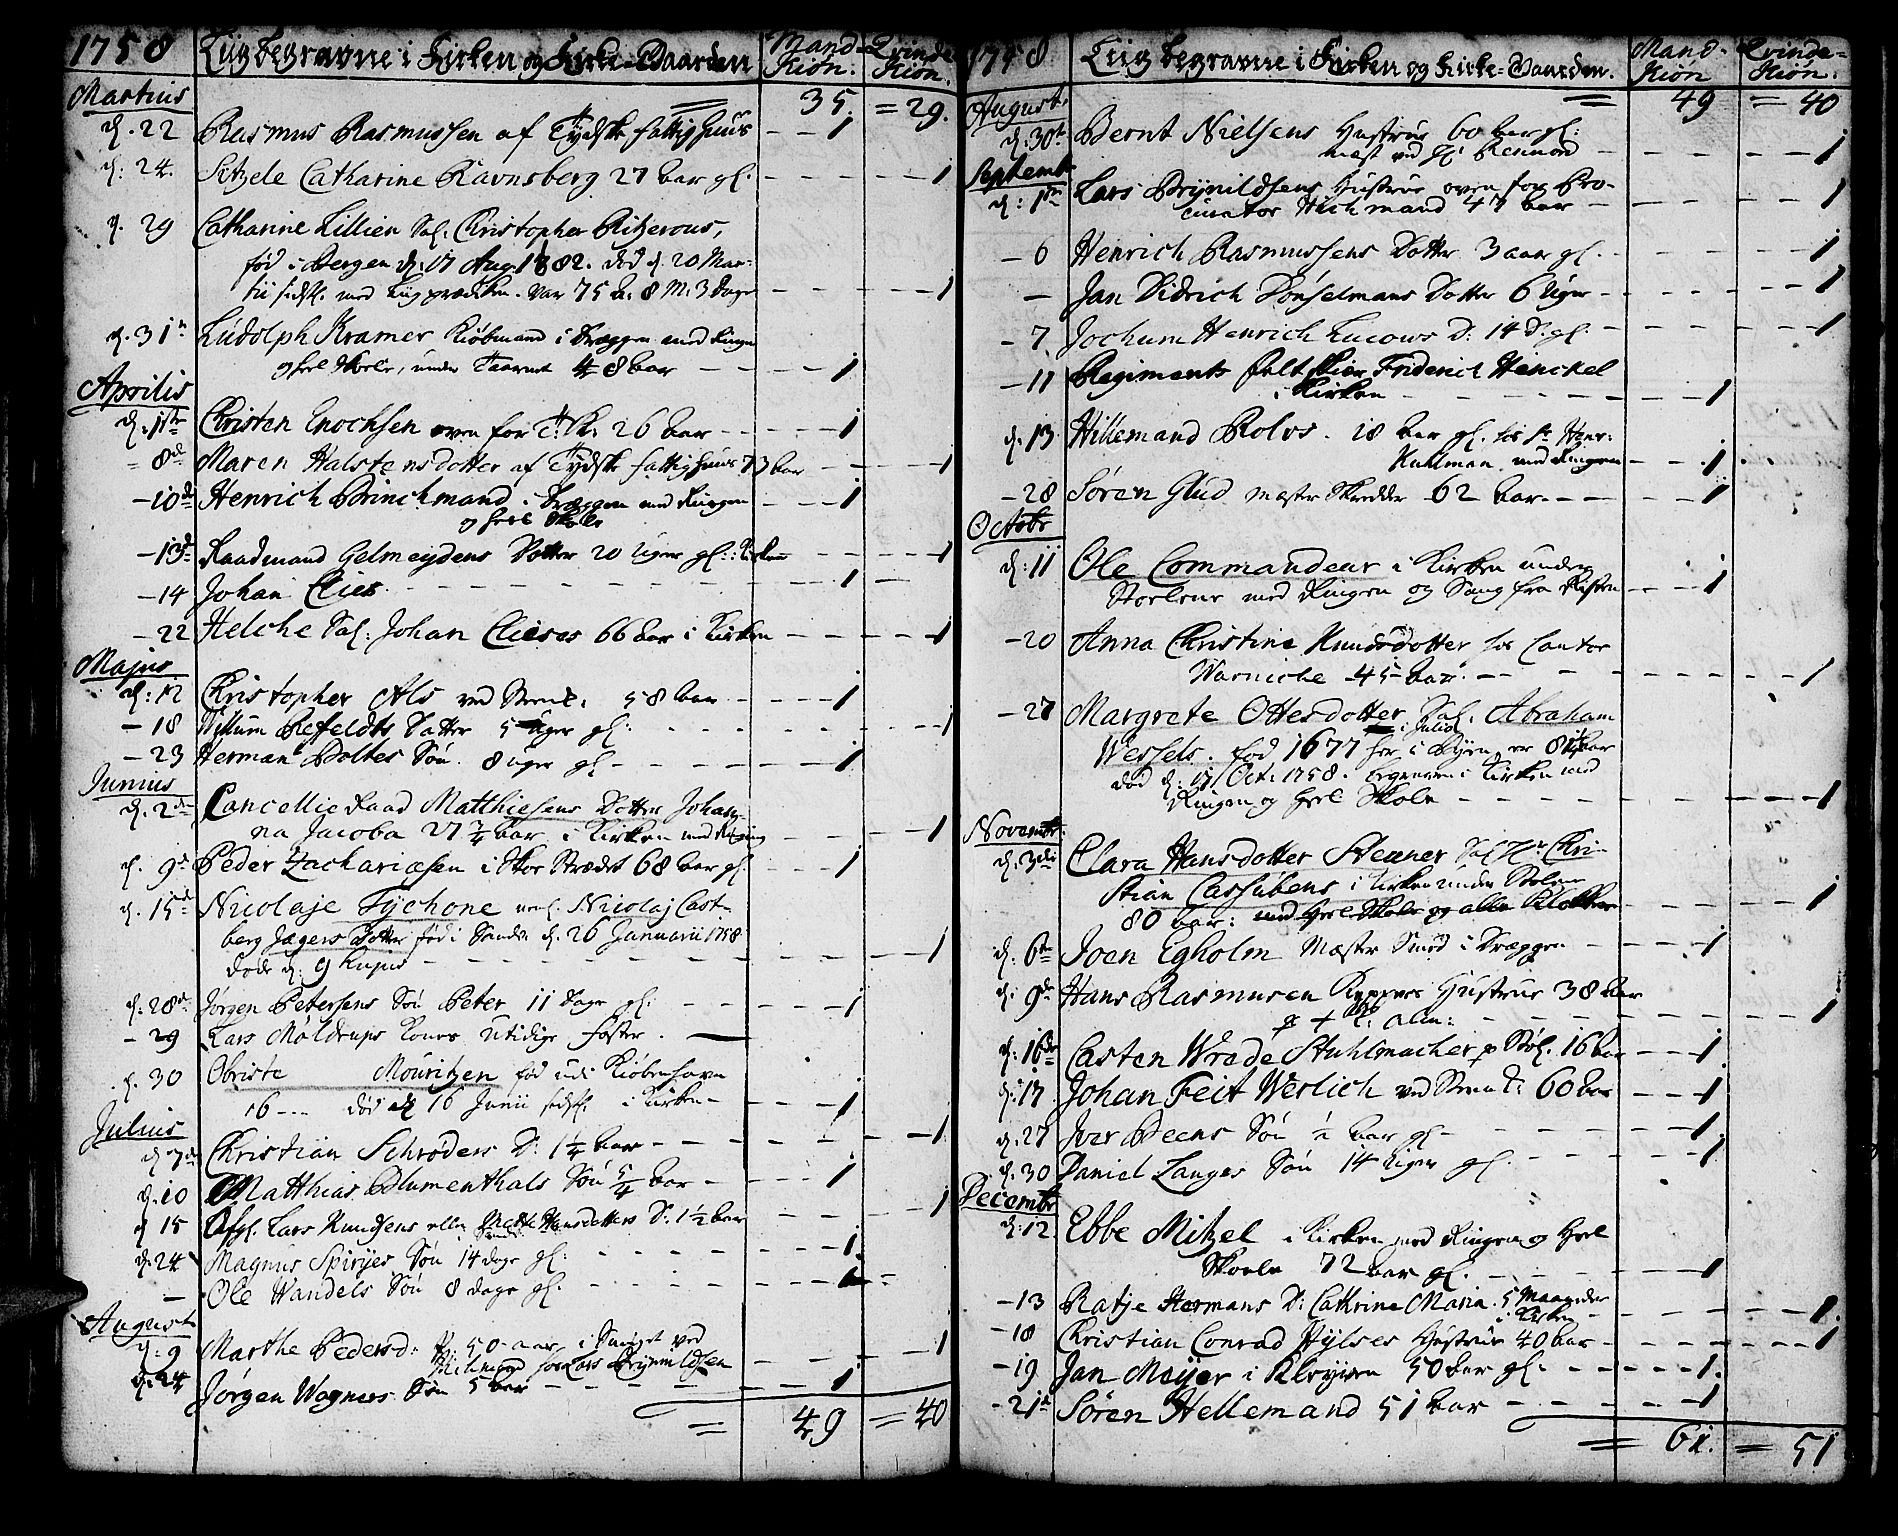 1758 Liig begravne i Kirken og Kirke-Gaarden Mand-Kiön. Qvinde Kiön.
Martius 35. = 29.
d. 22 Rasmus Rasmussen af Tydske fattighuus - - 1
d: 24. Sitzele Catharine Ravnsberg 27 Aar gl. - - - - 1
d. 29 Catharine Lillien Sal. Christopher Ritzerous,
född i Bergen d. 17 Aug. 1682. död d. 20 Mar-
tii sidstl. med Liigprædiken. Var 75 A. 8 M. 3 Dage - - - - 1
d. 31 Ludolph Kramer Kiöbmand i Dræggen med Ringen
og heel Skole, under Taarnet 48 Aar - - - 1
Aprilis
d: 1ste Christen Enochsen oven for T: K. 26 Aar - - - 1
- 8de Maren Halstensdotter af Tydske fattighuus 73 Aar - - 1
- 10de Henrich Brinchmand i Dræggen med Ringen - - 1
og heel Skole
- 13de Raadmand Gelmeydens Dotter 20 Uger gl. i Kirken - - 1
- 14 Johan Clies - - - 1
- 22 Helche Sal: Johan Clieses 66 Aar i Kirken - - - 1
Majus.
d: 12 Christopher Als ved 58 Aar - - - 1
- 18 Willum Refeldts Datter 5 Uger gl. - - - 1
- 23 Herman Boltes Sön. 8 uger gl - - - 1
Junius
d. 2den Cancellie Raad Matthiesens Dotter Johan-
na Jacoba 27 3/4 Aar i Kirken med Ringing - - - 1
d. 9de Peder Zachariæsen i Skoe Strædet 68 Aar gl. - - 1
d. 15de Nicolaje Tychone Nicolaj Cast-
berg Jægers Dotter född i d. 26 Januarii 1758
döde d: 9 hujus - - - 1
d. 28de Jörgen Petersens Sön Peter 11 Dage gl: - - - 1
- 29 Lars Möldrups Kones Utidige foster.
d. 30 Obriste Mouritzen född udi Kiöbenhavn
16 - - - död d. 16 Junii sidstl. i Kirken - - - 1
Julius
d. 7de Christian Schröders D: 1 1/4 Aar - - - 1
d. 10 Matthias Blumenthals Sön 5/4 Aar - - - 1
d. 15 Afgl. Lars Knudsens eller Mette Hansdotters D: 1 1/2 Aar - - - 1
d. 24 Magnus Spirijes Sön 14 dage gl: - - - 1
- Ole Wandels Sön 8 dage gl. - - - 1
August
d: 9 Marthe Pedersd: 50 aar, i ved
for Lars Brynildsen - - - 1
d. 24 Jörgen Wagners Sön 5 Aar - - - 1
= 49 = 40
1758 Liig begravne i Kirken og Kirke-Gaarden. Mand-Kiön Qvinde-Kiön.
August. = 49 = 40
d: 30te Bernt Nielsens Hustrue 60 Aar gl:
næst ved - - - 1
Septembr
d: 1ste Lars Brynildsens Hustrue oven for Pro-
curator Hichmand 47 Aar - - - 1
- 6 Henrich Rasmussens Dotter 3 aar gl. - - - 1
- Jan Didrich Dönselmans Dotter 6 Uger - - - 1
- 7. Jochum Henrich Lucows D: 14 D. gl. - - - 1
- 11 Regiments feltskier Friderich Henckel
i Kirken - - - 1
d. 13 Hillemand Rolvs. 18 Aar gl. hos Sr Henr:
Kuhlman. med Ringen - - - 1
- 28 Sören Glud mester Skredder 62 Aar - - - 1
Octobr
d: 11 Ole Commandeur i Kirken under
Stoelene med Ringen og Sang fra Kisten - - 1
- 20 Anna Christine Knudsdotter hos Cantor
Warniche 45 Aar. - - - 1
- 27 Margrete Ottesdotter Sal. Abraham
Wessels. född 1677 i Julio her i Byen, er 81 Aar
död d: 17 Oct. 1758. begraven i Kirken med
Ringen og heel Skole - - - 1
Novembr.
d: 3die Clara Hansdotter Steuner Sal. Hr Chri-
stian Cassubens i Kirken under Stolene
80 Aar: med heel Skole og alle Klokker - - - 1
d. 6te Joen Egholm Mæster Smed i Dræggen - - - 1
d. 9de Hans Rasmusen Hustrue 38 Aar
p + K: alm: - - - 1
d: 16de Casten Wrede Stuhlmacher p Stöl. 16 Aar - - 1
d: 17. Johan Feit Werlich ved 60 Aar - - 1
d. 27 Iver Deens Sön 1/2 Aar gl - - - 1
d. 30 Daniel Langes Sön 14 Uger gl. - - - 1
Decembr
d: 12. Ebbe Mitzel i Kirken med Ringen og heel
Skole 72 Aar gl. - - - 1
- 13 Ratje Hermans D: Cathrine Maria. 5 Maaneder
i Kirken - - - 1
- 18 Christian Conrad Hylses Hustrue 40 Aar - - - 1
- 19 Jan Meijer i Kloyven 50 Aar gl. - - - 1
- 21de Sören Hellemand 51 Aar - - - 1
= 61. = 51